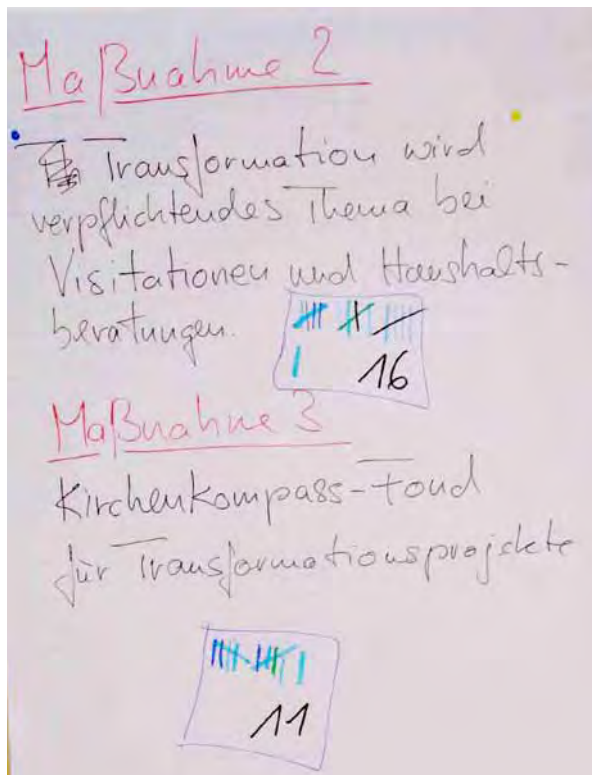 Maßnahme 2
Transformation wird
verpflichtendes Thema bei
Visitationen und Haushalts-
beratungen.
16
Maßnahme 3
Kirchenkompass-Fond
für Transformationsprojekte
11